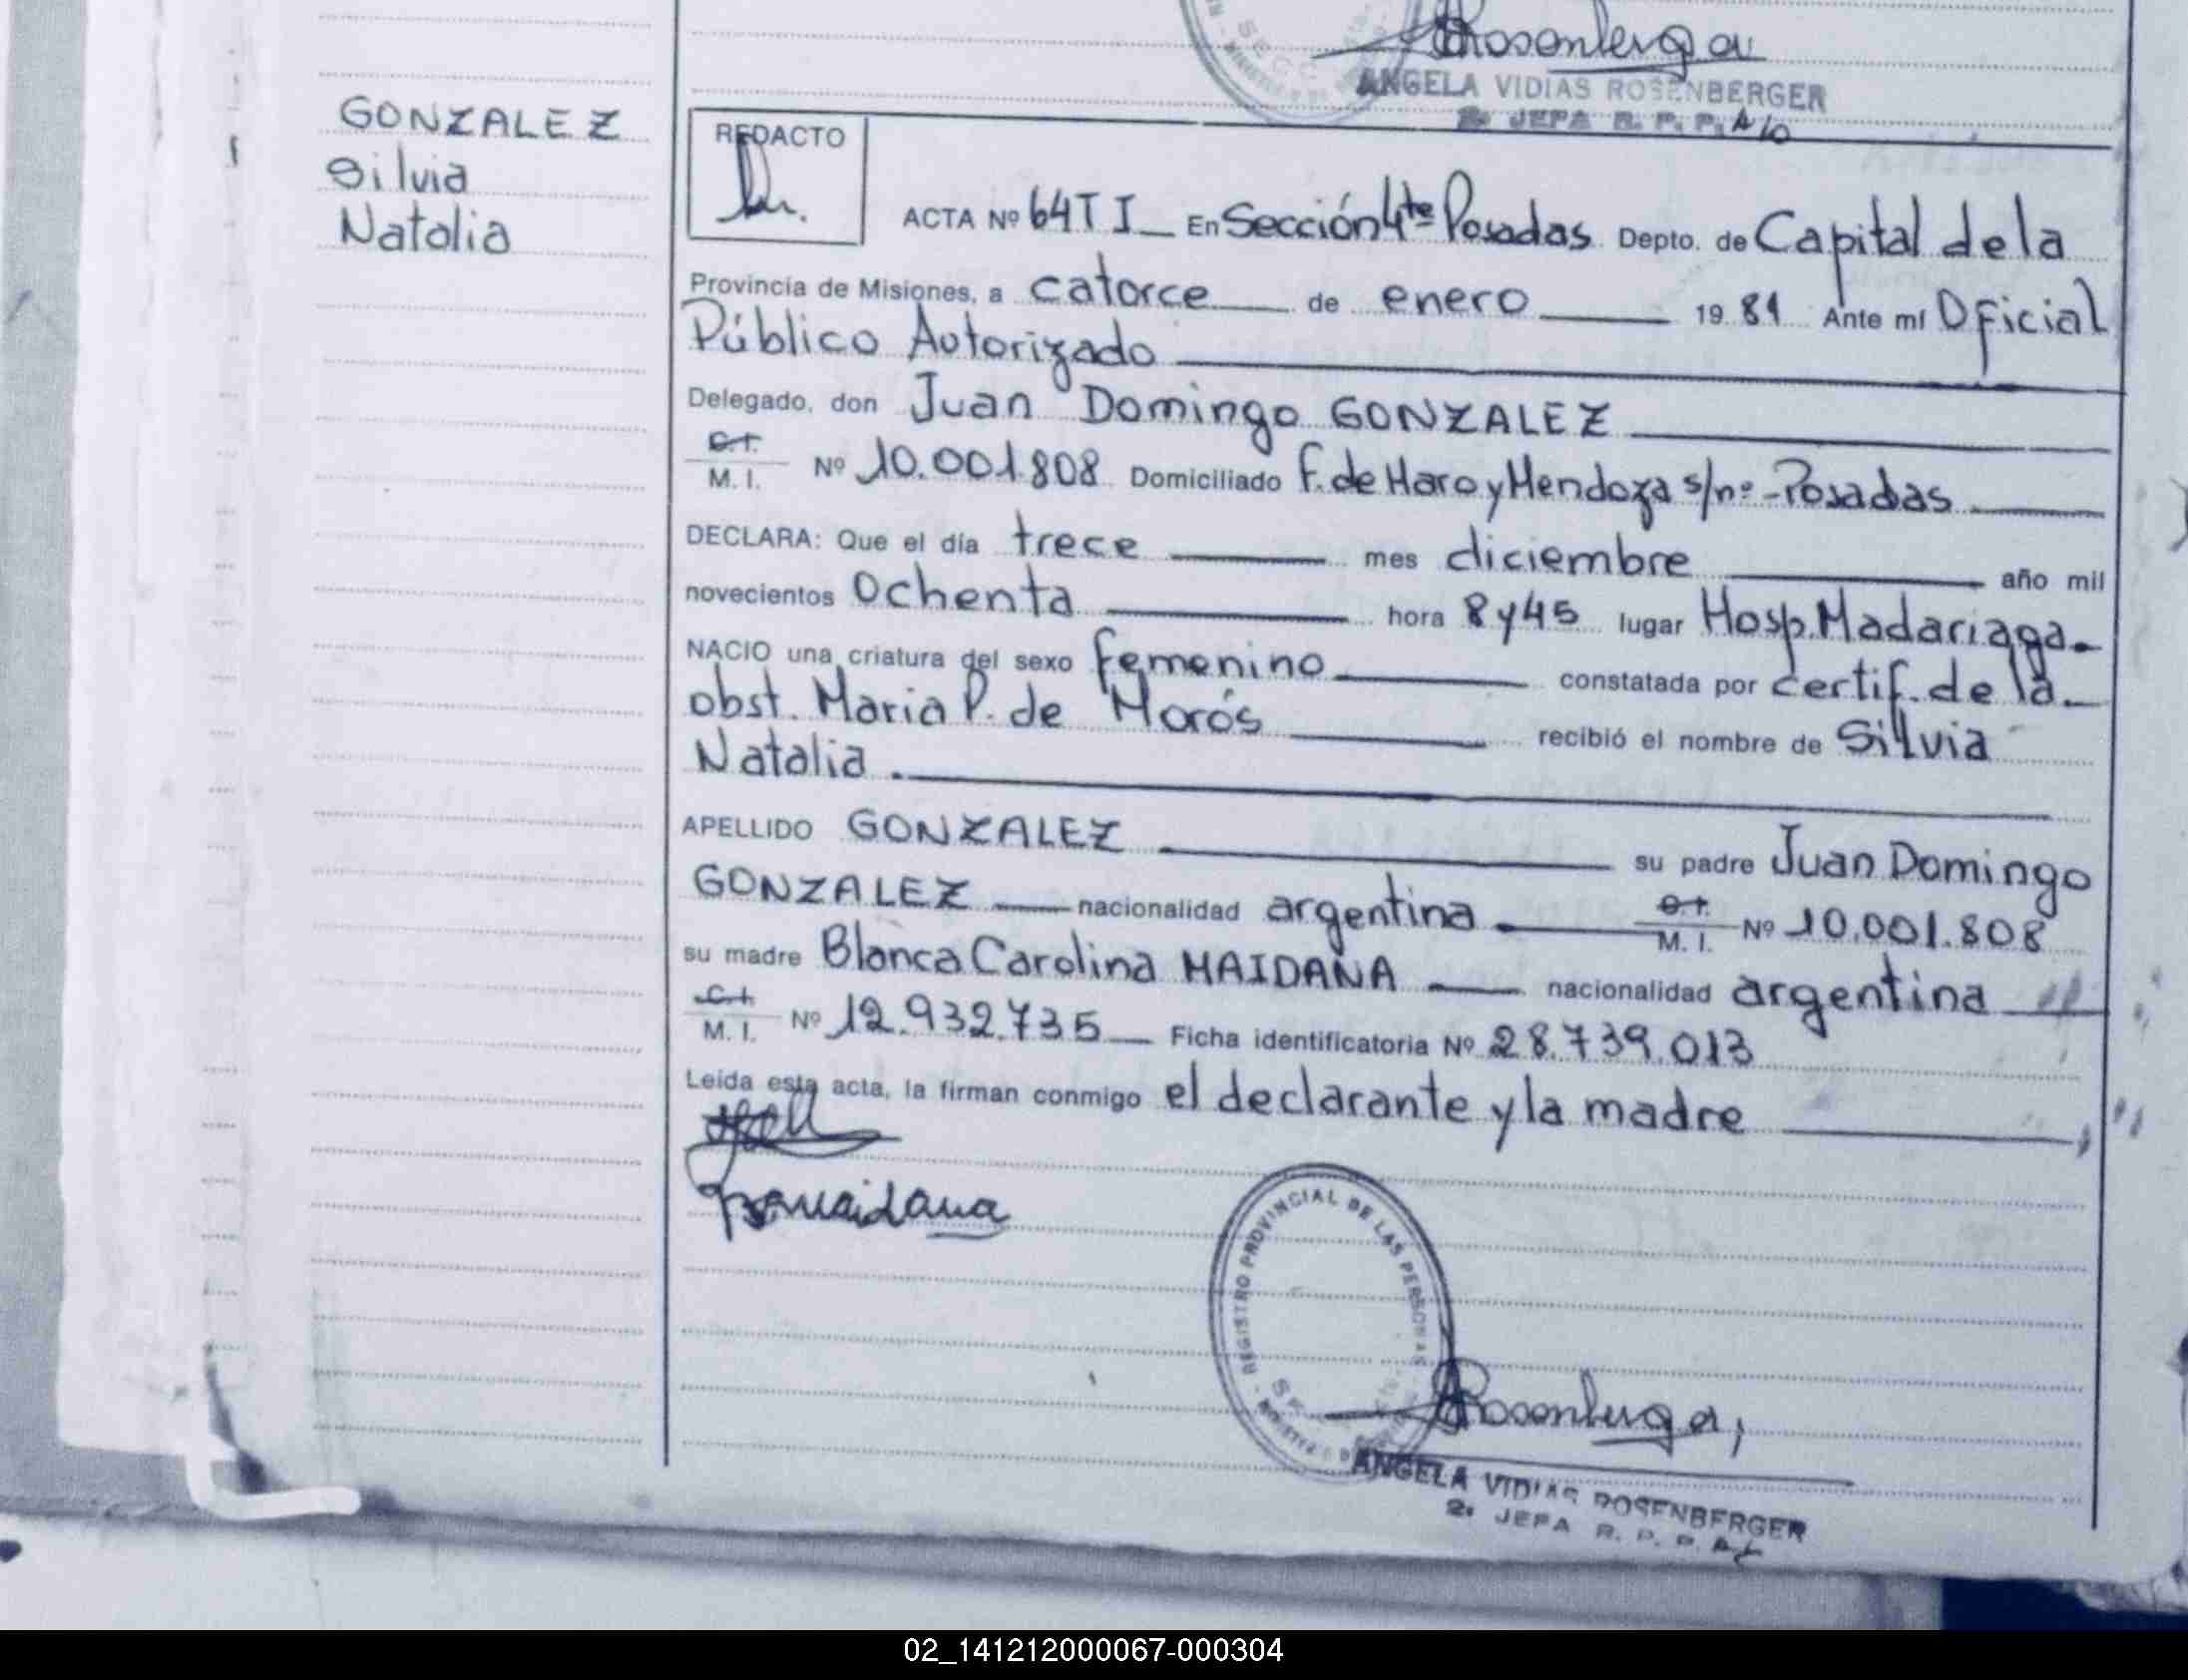 Rosenberger
ANGELA VIDIAS ROSENBERGER
2a JEFA R. P. P. A/c
GONZALEZ
Silvia
Natalia
REDACTO
ACTA Nº 64 T I _ En Sección 4ta Posadas Depto. de Capital de la
Provincia de Misiones, a catorce de enero 1981 Ante mí Oficial
Público Autorizado
Delegado, don Juan Domingo GONZALEZ
C.I.
M. I. Nº 10.001.808 Domiciliado F. de Haro y Mendoza s/nº - Posadas
DECLARA: Que el día trece mes diciembre año mil
novecientos ochenta hora 8 y 45 lugar Hosp. Madariaga
NACIO una criatura del sexo femenino constatada por certif. de la
obst. Maria P. de Morós recibió el nombre de Silvia
Natalia.
APELLIDO GONZALEZ su padre Juan Domingo
GONZALEZ nacionalidad argentina C.I. M. I. Nº 10.001.808
su madre Blanca Carolina MAIDANA nacionalidad argentina
C.I.
M. I. Nº 12.932.735 Ficha identificatoria Nº 28.739.013
Leída esta acta, la firman conmigo el declarante y la madre
REGISTRO PROVINCIAL DE LAS PERSONAS
Rosenberger
ANGELA VIDIAS ROSENBERGER
2a JEFA R. P. P. A/c
02_141212000067-000304